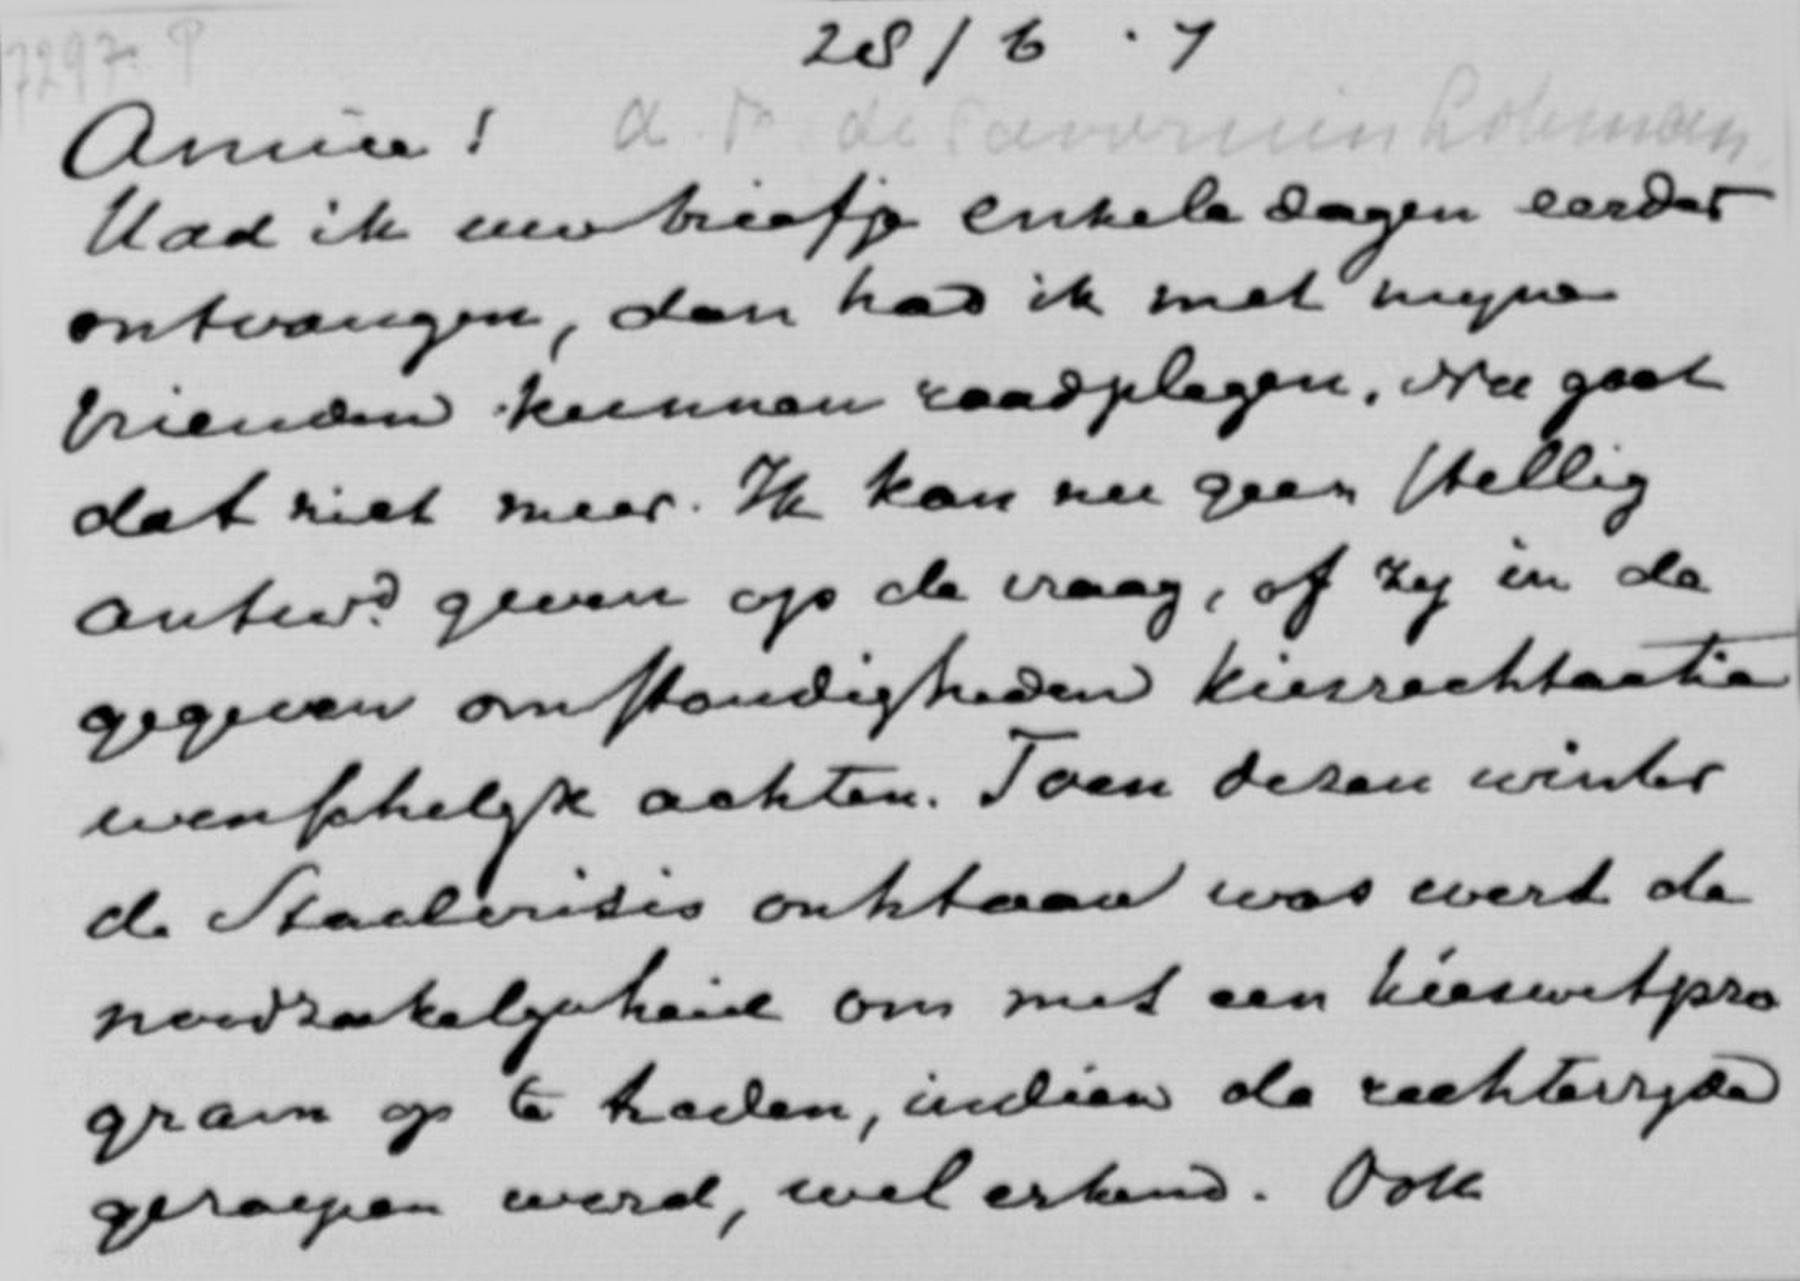 28/6 . 7
7297. P
Amice! A. F. de Savornin Lohman
Had ik uw briefje enkele dagen eerder
ontvangen, dan had ik met mijne
vrienden kunnen raadplegen. Nu gaat
dat niet meer. Ik kan nu geen stellig
antwd geven op de vraag, of zij in de
gegeven omstandigheden kiesrechtactie
wenschelijk achten. Toen dezen winter
de Staalcrisis ontstaan was werd de
noodzakelijkheid om met een kieswetpro
gram op te treden, indien de rechterzijde
geroepen werd, wel erkend. Ook